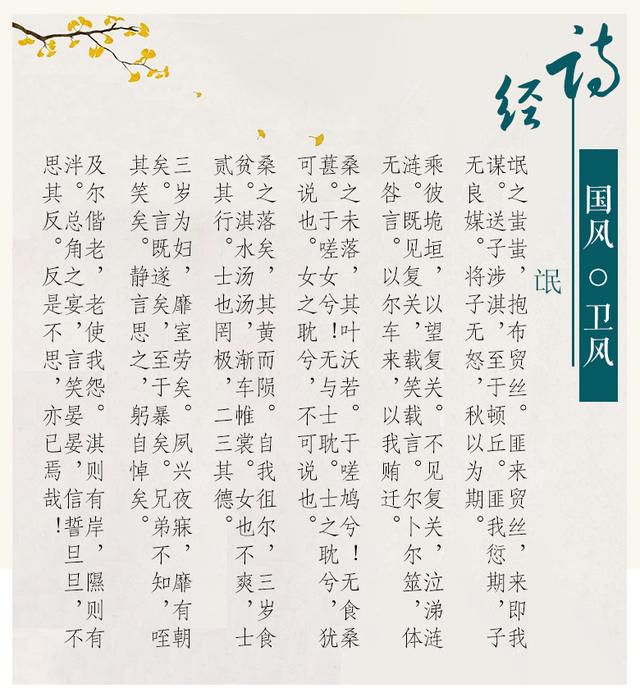 诗经
国风○卫风
氓
氓之蚩蚩，抱布贸丝。匪来贸丝，来即我
谋。送子涉淇，至于顿丘。匪我愆期，子
无良媒。将子无怒，秋以为期。
乘彼垝垣，以望复关。不见复关，泣涕涟
涟。既见复关，载笑载言。尔卜尔筮，体
无咎言。以尔车来，以我贿迁。
桑之未落，其叶沃若。于嗟鸠兮！无食桑
葚。于嗟女兮！无与士耽。士之耽兮，犹
可说也。女之耽兮，不可说也。
桑之落矣，其黄而陨。自我徂尔，三岁食
贫。淇水汤汤，渐车帷裳。女也不爽，士
贰其行。士也罔极，二三其德。
三岁为妇，靡室劳矣。夙兴夜寐，靡有朝
矣。言既遂矣，至于暴矣。兄弟不知，咥
其笑矣。静言思之，躬自悼矣。
及尔偕老，老使我怨。淇则有岸，隰则有
泮。总角之宴，言笑晏晏，信誓旦旦，不
思其反。反是不思，亦已焉哉！